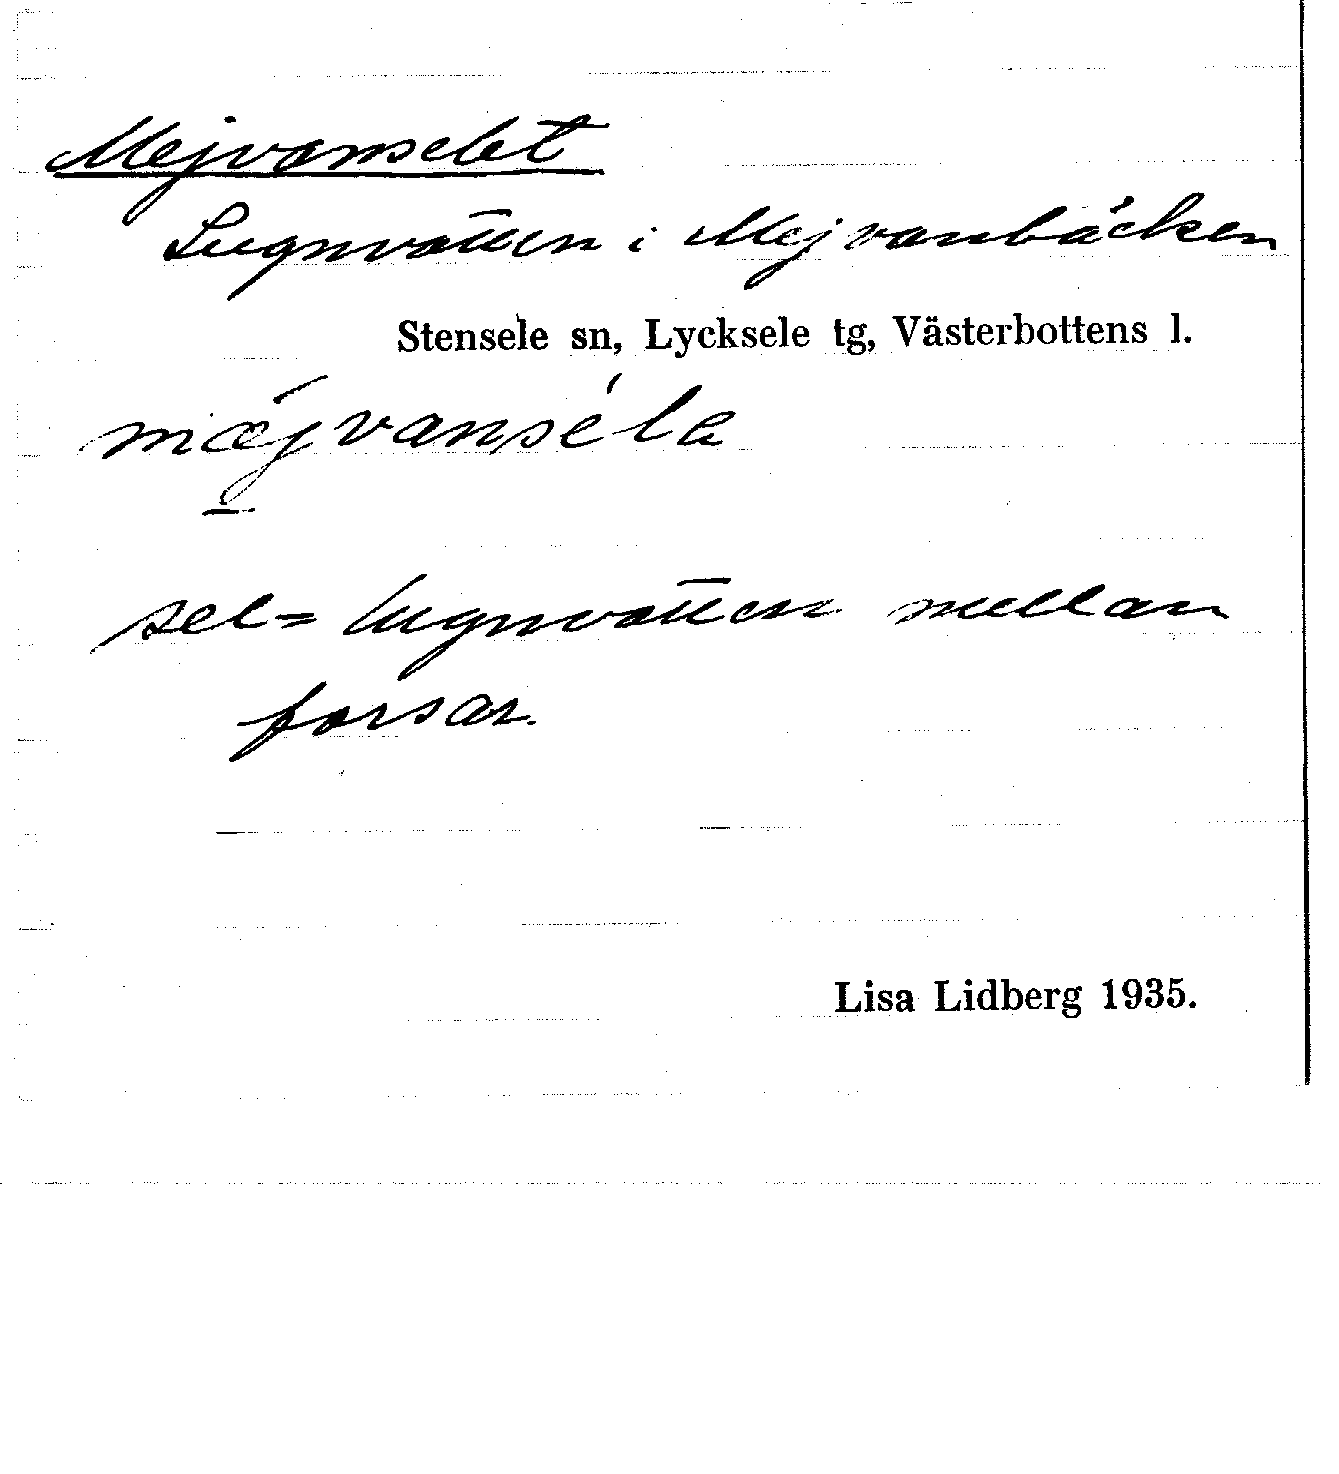 Mejvanselet
Lugnvatten i Mejvanbäcken
Stensele sn, Lycksele tg, Västerbottens l.
mæ̱jvanséla
sel = lugnvatten mellan
forsar.
Lisa Lidberg 1935.